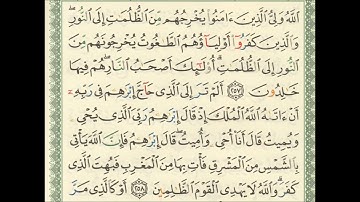 اللَّهُ وَلِيُّ الَّذِينَ ءَامَنُوا يُخْرِجُهُم مِّنَ الظُّلُمَٰتِ إِلَى النُّورِ ۖ
وَالَّذِينَ كَفَرُوٓا أَوْلِيَآؤُهُمُ الطَّٰغُوتُ يُخْرِجُونَهُم مِّنَ
النُّورِ إِلَى الظُّلُمَٰتِ ۗ أُولَٰٓئِكَ أَصْحَٰبُ النَّارِ ۖ هُمْ فِيهَا
خَٰلِدُونَ ٢٥٧ أَلَمْ تَرَ إِلَى الَّذِي حَآجَّ إِبْرَٰهِمَ فِي رَبِّهِۦٓ
أَنْ ءَاتَىٰهُ اللَّهُ الْمُلْكَ إِذْ قَالَ إِبْرَٰهِمُ رَبِّيَ الَّذِي يُحْيِۦ
وَيُمِيتُ قَالَ أَنَا۠ أُحْيِۦ وَأُمِيتُ ۖ قَالَ إِبْرَٰهِمُ فَإِنَّ اللَّهَ يَأْتِي
بِالشَّمْسِ مِنَ الْمَشْرِقِ فَأْتِ بِهَا مِنَ الْمَغْرِبِ فَبُهِتَ الَّذِي
كَفَرَ ۗ وَاللَّهُ لَا يَهْدِي الْقَوْمَ الظَّٰلِمِينَ ٢٥٨ أَوْ كَالَّذِي مَرَّ